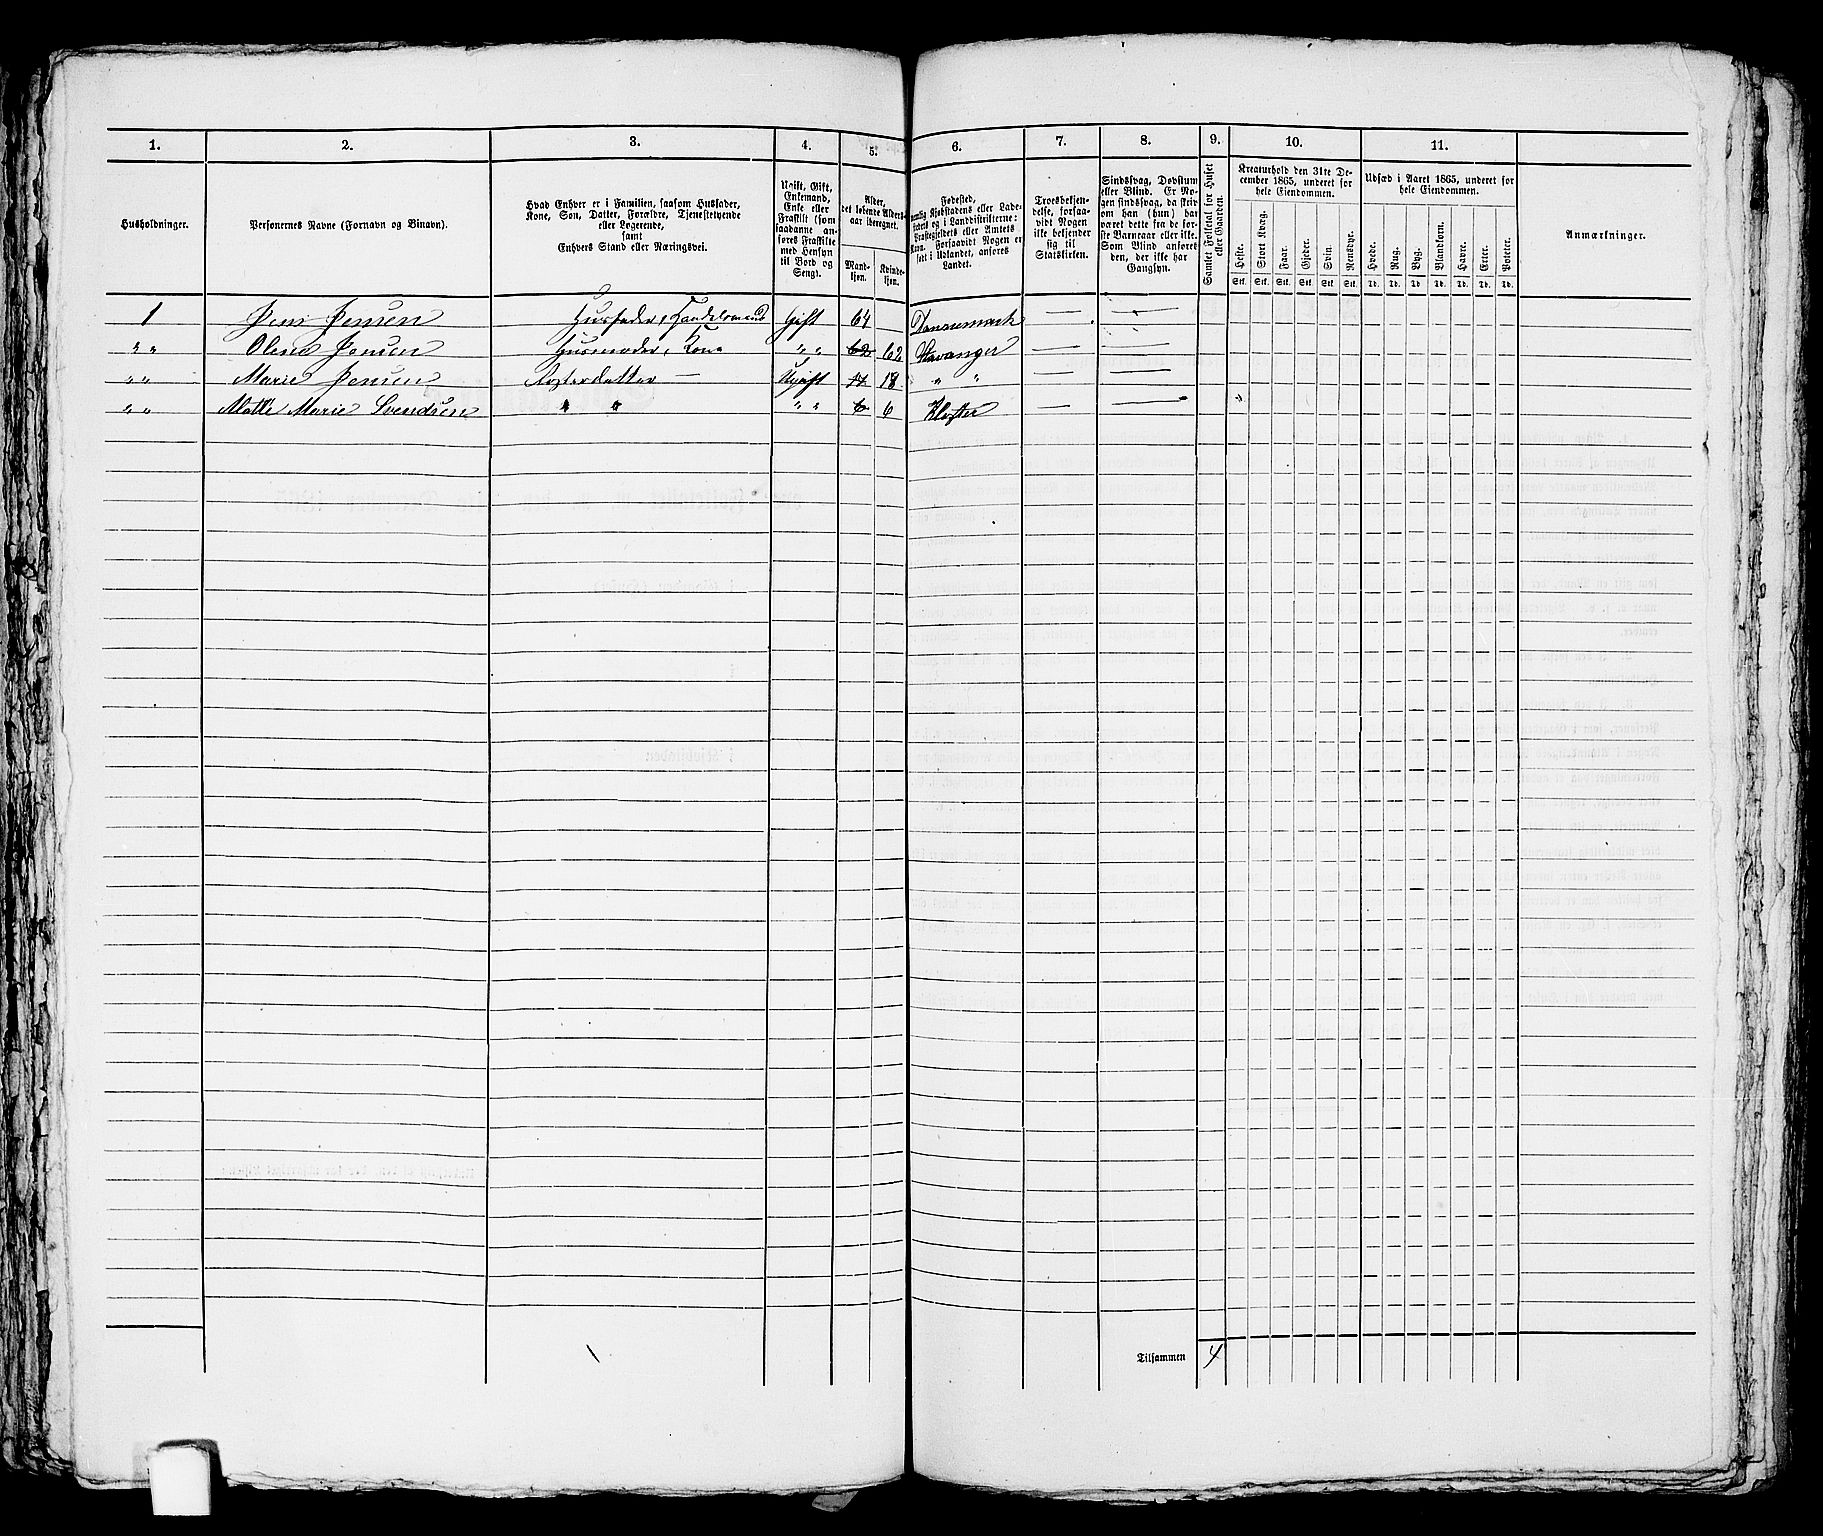 1. 2. 3. 4. 5. 6. 7. 8. 9. 10. 11.
Husholdninger.
Personernes Navne (Fornavn og Binavn).
Hvad Enhver er i Familien, saasom Husfader,
Kone, Søn, Datter, Forældre, Tjenestetyende
eller Logerende,
samt
Enhvers Stand eller Næringsvei.
Ugift, Gift,
Enkemand,
Enke eller
Fraskilt (som
saadanne an-
føres Fraskilte
med Hensyn
til Bord og
Seng).
Alder,
det løbende Alders-
aar iberegnet.
Mand-
kjøn.
Kvinde-
kjøn.
Fødested,
nemlig Kjøbstadens eller Lade-
stedets og i Landdistrikterne:
Præstegjeldets eller Amtets
Navn. Forsaavidt Nogen er
født i Udlandet, anføres
Landet.
Troesbekjen-
delse, forsaa-
vidt Nogen
ikke bekjender
sig til
Statskirken.
Sindssvag, Døvstum
eller Blind. Er No-
gen sindssvag, da skriv
om han (hun) har
været dette fra de før-
ste Barnaaar eller ikke.
Som Blind anføres
den, der ikke har
Gangsyn.
Samlet Folketal for Huset
eller Gaarden.
Kreaturhold den 31te De-
cember 1865, underet for
hele Eiendommen.
Heste. Stort Kvæg. Faar. Gjeder. Svin. Rensdyr.
Stk. Stk. Stk. Stk. Stk. Stk.
Udsæd i Aaret 1865, underet for
hele Eiendommen.
Hvede. Rug. Byg. Blandkorn. Havre. Erter. Poteter.
Td. Td. Td. Td. Td. Td. Td.
Anmærkninger.
1 Jens Jensen Husfader, Handelsmand Gift 64 Dannemark — —
" " Olene Jensen Husmoder, Kone " " 62 62 Stavanger — —
" " Marie Jensen Fosterdatter — Ugift 17 18 " " — —
" " Mallé Marie Svendsen " " " " 6 6 Kloster — —
Tilsammen 4